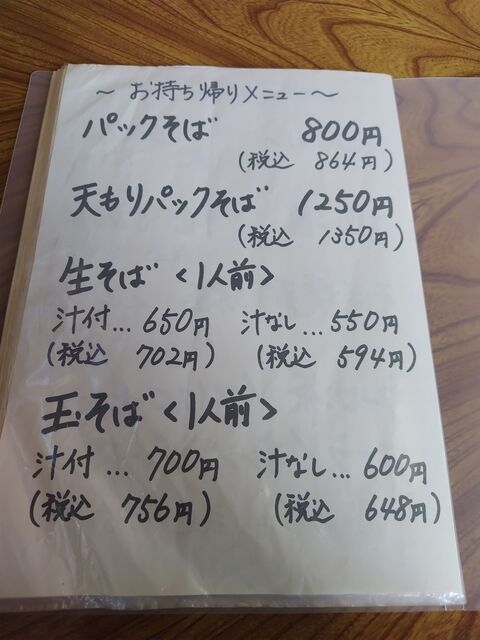 ～ お持ち帰りメニュー ～
パックそば 800円
(税込 864円)
天もりパックそば 1250円
(税込 1350円)
生そば <1人前>
汁付… 650円 汁なし… 550円
(税込 702円) (税込 594円)
玉そば <1人前>
汁付… 700円 汁なし… 600円
(税込 756円) (税込 648円)